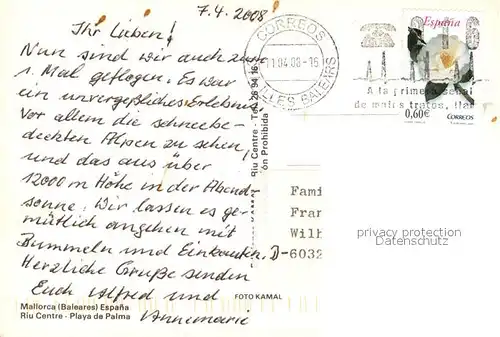 7.4.2008
Ihr Lieben!
Nun sind wir auch zum
1. Mal geflogen. Es war
ein unvergeßliches Erlebnis
Vor allem die schneebe-
deckten Alpen zu sehen,
und das aus über
12000 m Höhe in der Abend-
sonne. Wir lassen es ge-
mütlich angehen mit
Bummeln und Einkaufen.
Herzliche Grüße senden
Euch Alfred und
Annemarie
Mallorca (Baleares) España
Riu Centre - Playa de Palma
FOTO KAMAL
Riu Centre - Tel. 26 94 16
ón Prohibida
CORREOS
11.04.08-16
ILLES BALEARS
A la primera señal
de malos tratos, llama
España
0,60€
CORREOS
Fami
Fran
Wilh
D-6032
privacy protection
Datenschutz